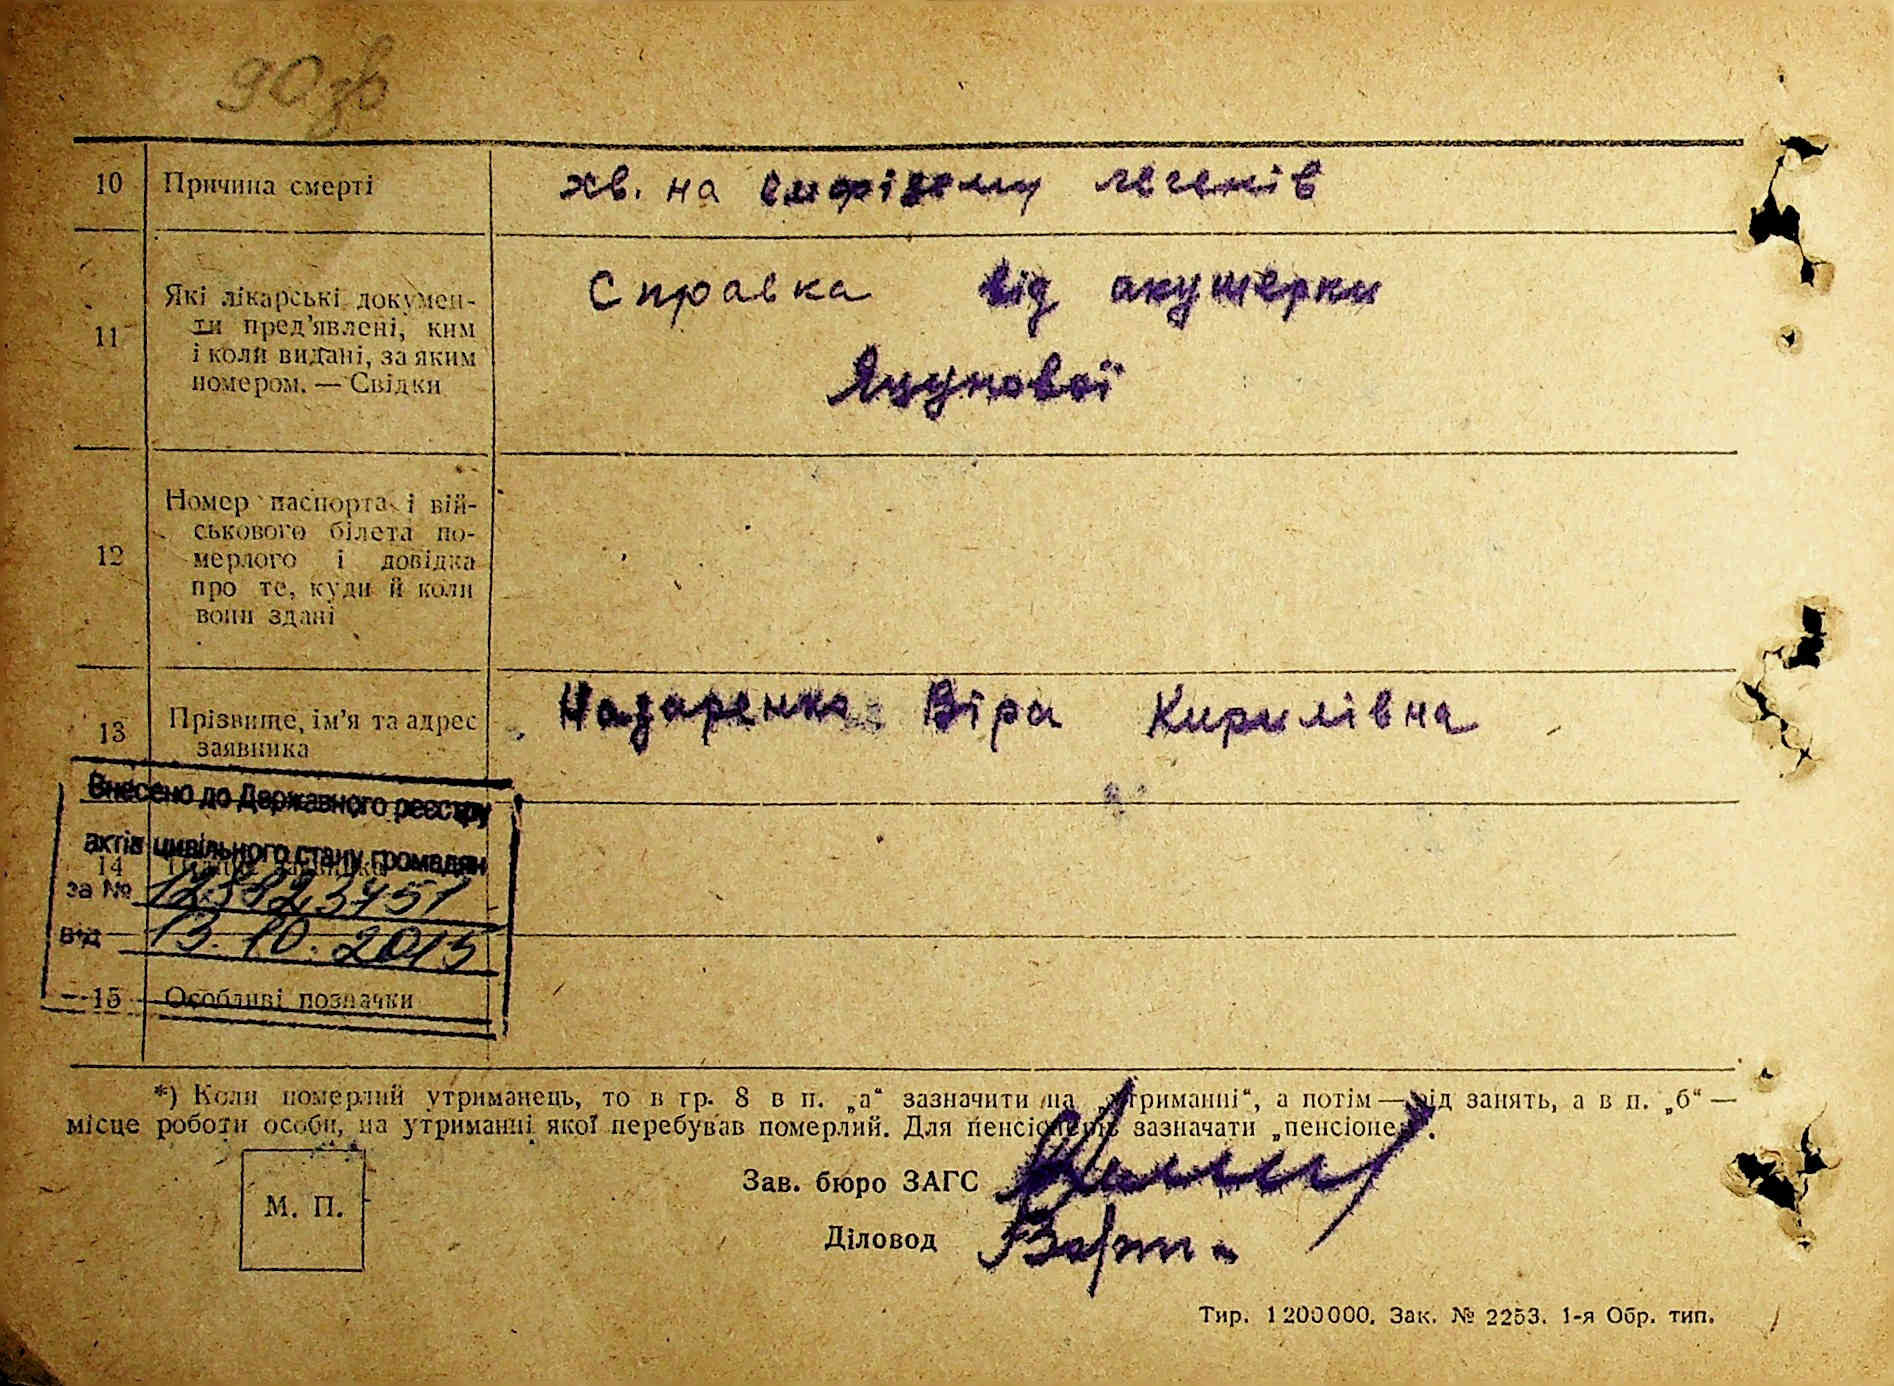 90зв
10 Причина смерті хв. на емфізему легенів
11 Які лікарські докумен-
ти пред'явлені, ким
і коли видані, за яким
номером. — Свідки
Справка від акушерки
Яцунової
12 Номер паспорта і вій-
ськового білета по-
мерлого і довідка
про те, куди й коли
вони здані
13 Прізвище, ім'я та адрес
заявника
Назаренко Віра Кирилівна
Внесено до Державного реєстру
актів цивільного стану громадян
14
за №
від 13.10.2015
15 Особливі позначки
*) Коли померлий утриманець, то в гр. 8 в п. „а“ зазначити на „утриманні“, а потім — від занять, а в п. „б“ —
місце роботи особи, на утриманні якої перебував померлий. Для пенсіонерів зазначати „пенсіонер“.
М. П.
Зав. бюро ЗАГС
Діловод
Тир. 1200000. Зак. № 2253. 1-я Обр. тип.